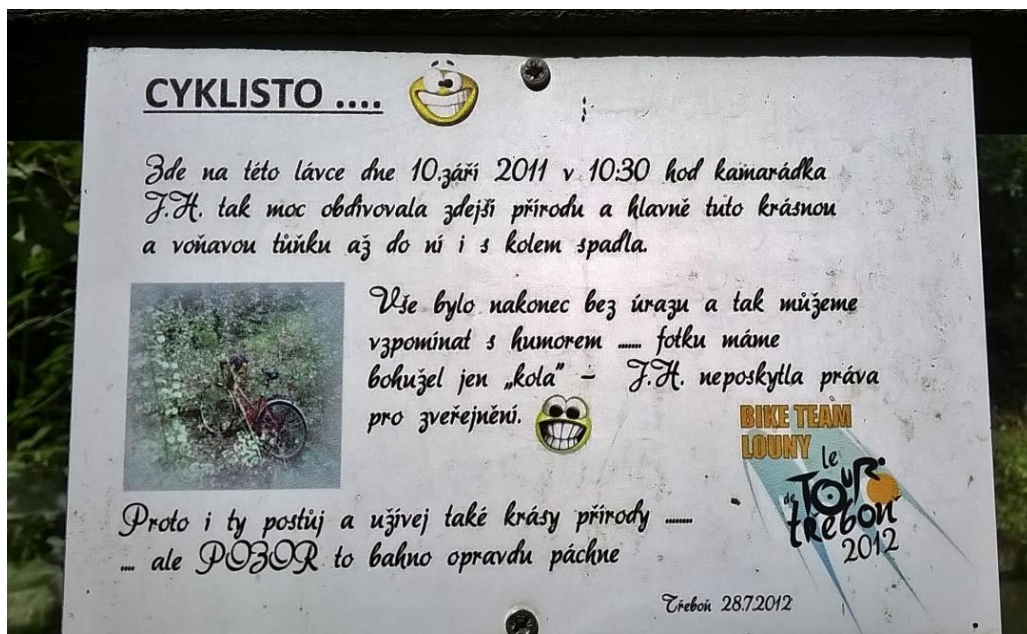 CYKLISTO ....
Zde na této lávce dne 10.září 2011 v 10:30 hod kamarádka
J.H. tak moc obdivovala zdejší přírodu a hlavně tuto krásnou
a voňavou tůňku až do ní i s kolem spadla.
Vše bylo nakonec bez úrazu a tak můžeme
vzpomínat s humorem ...... fotku máme
bohužel jen „kola" - J.H. neposkytla práva
pro zveřejnění.
BIKE TEAM
LOUNY
le
de TOUR
třeboň
2012
Proto i ty postůj a užívej také krásy přírody .......
.... ale POZOR to bahno opravdu páchne
Třeboň 28.7.2012